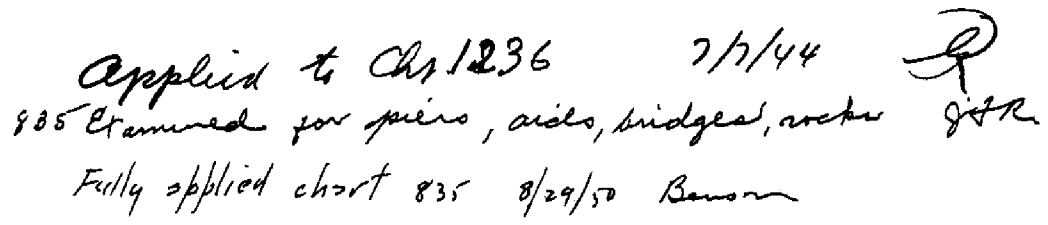 Applied to Cht 1236 7/7/44
835 Examined for piers, aids, bridges, rocks JFR
Fully applied chart 835 8/29/50 Benson